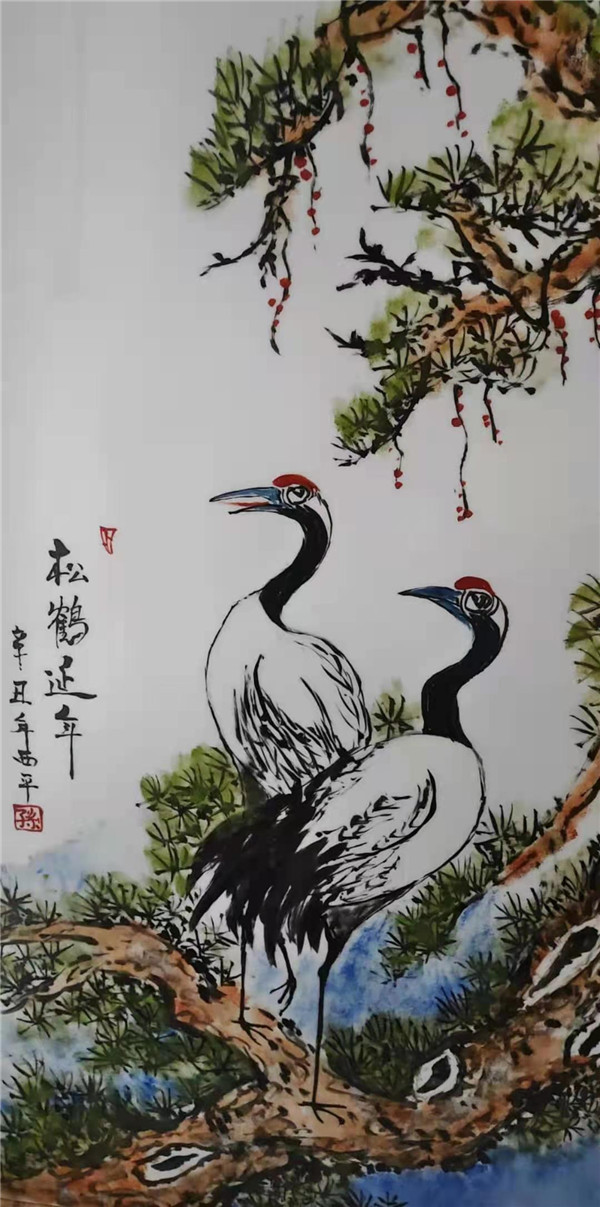 松鹤延年
辛丑年西平
孫